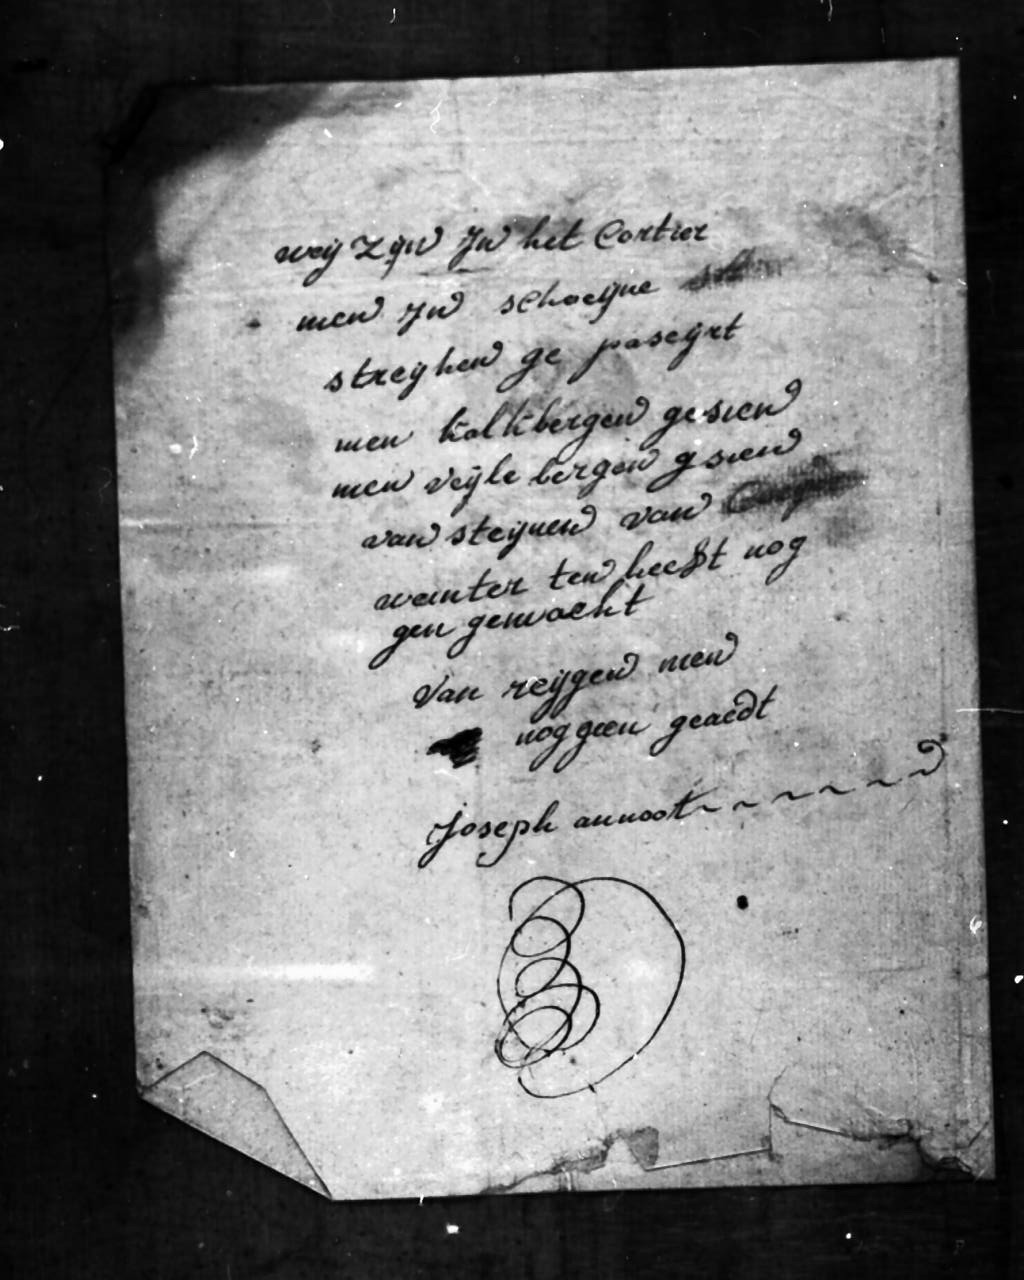 weij zijn Jn het Cortier
men Jn schoeijne
streijken ge paseijrt
men kalkbergen gesien
men veijle bergen gsien
van steijnen van
weinter ten heeft nog
gen gewacht
van reijgen men
nog geen geacdt
Joseph annoot